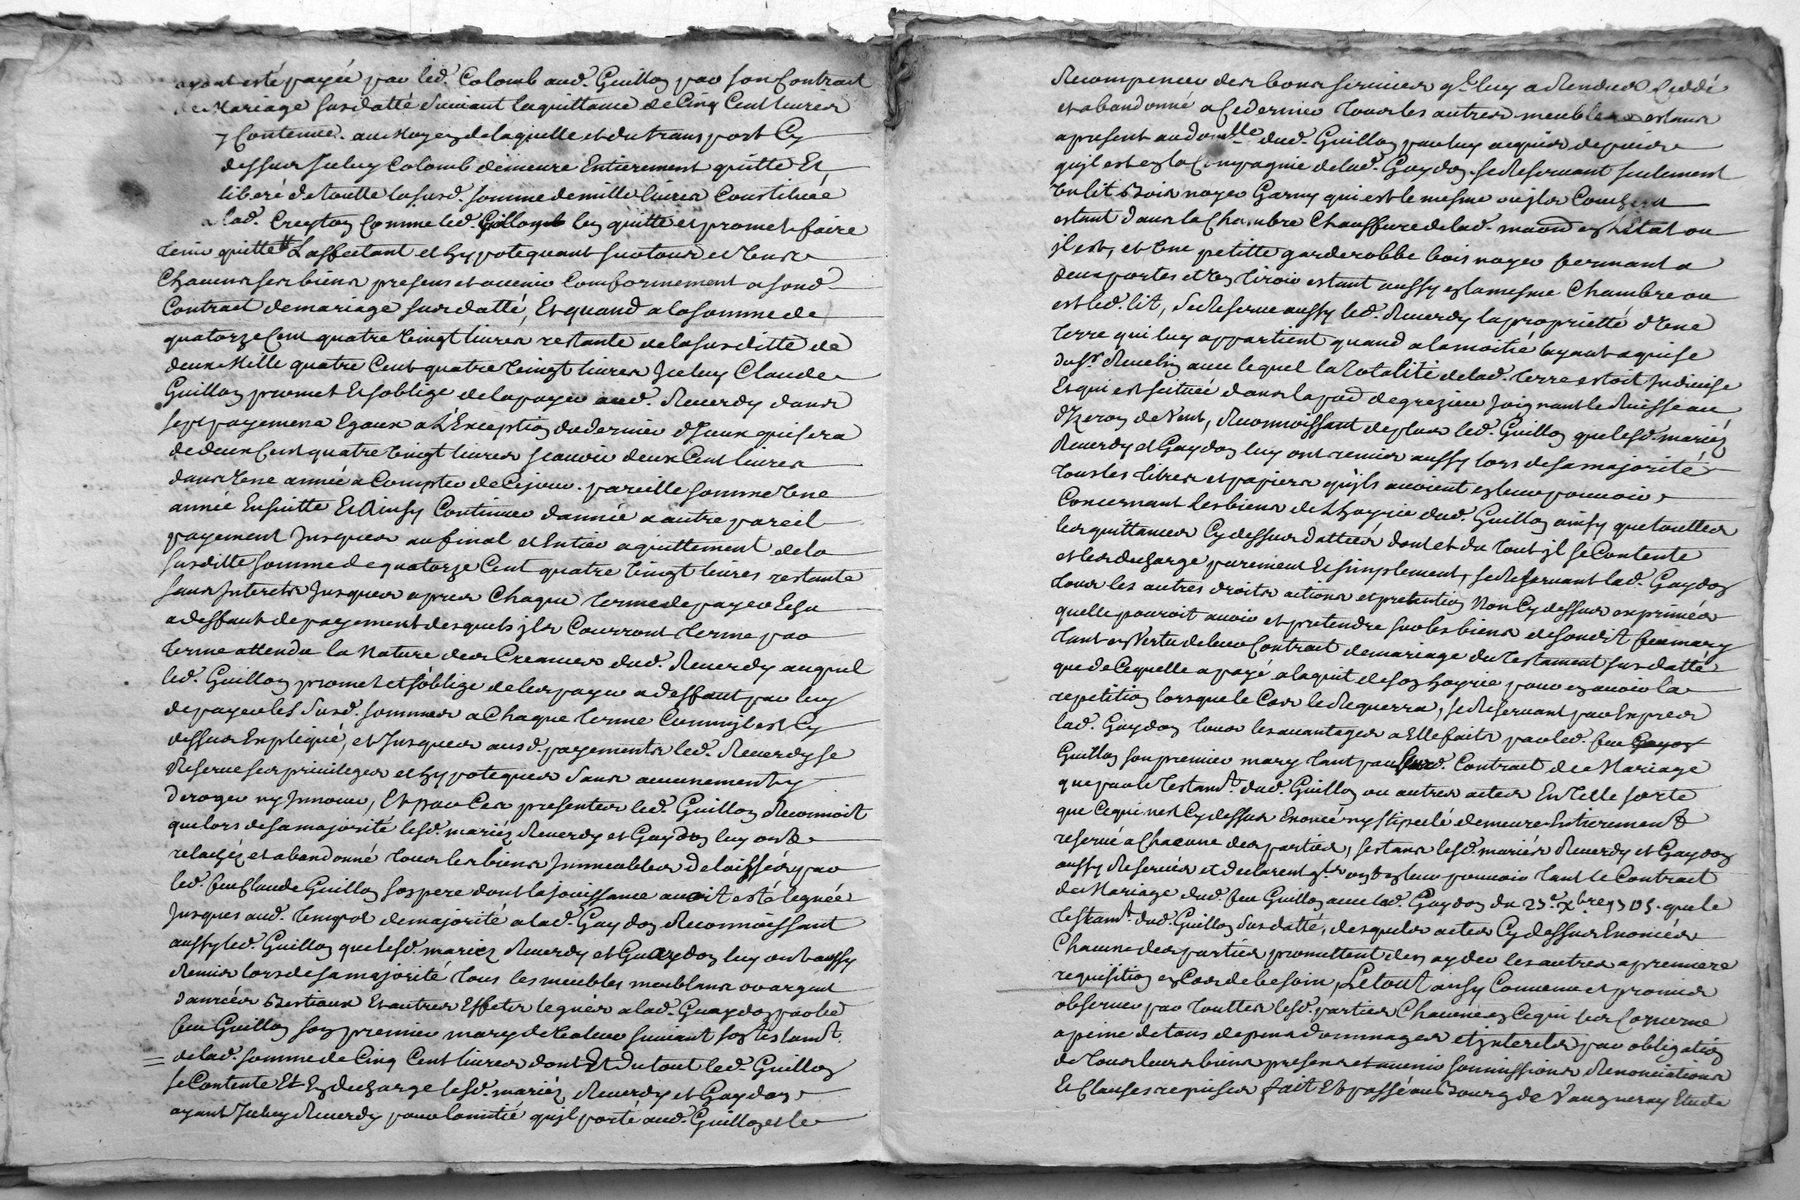 ayant esté payée par led. Colomb aud. Guillon par son Contract
de Mariage susdatté suivant la quittance de Cinq Cent livres
y Contenue. au Moyen de laquelle et du transport Cy
dessus Iceluy Colomb demeure Entierement quitte Et
liberé de toutte la susd. somme de mille livres Constituée
a lad. Creyton Comme led. Guillon len quitte et promet faire
tenir quitte L'affectant et hypotequant sur tous et Uns
Chacuns ses biens presens et avenir Comformement a sond
Contract de mariage susdatté, Et quand a la somme de
quatorze Cent quatre Vingt livres restante de la susditte de
deux Mille quatre Cent quatre Vingt livres Iceluy Claude
Guillon promet Et soblige de la payer aud. Reverdy dans
sept payemens Egaux a l'Exception du dernier d'Iceux qui sera
de deux Cent quatre Vingt livres scavoir deux Cent livres
dans Une année a Compter de Cejour. pareille somme Une
année Ensuitte Et Ainsy Continuer d'année a autre pareil
payement Jusques au final et Entier aquittement de la
susditte somme de quatorze Cent quatre Vingt livres restante
sans Interets Jusques apres Chaque terme de payer Echu
a deffaut de payement desquels ils Courront terme par
terme attendu la Nature des Creances dud. Reverdy auquel
led. Guillon promet et soblige de les payer a deffaut par luy
de payer les Susd. sommes a Chaque terme Comme il est Cy
dessus Expliqué, et Jusques ausd. payements led. Reverdy se
Reserve ses privileges et hypoteques Sans aucunement y
deroger ny Innover, Et par Ces presentes led. Guillon Reconnoit
que lors de sa majorité lesd. mariez Reverdy et Gaydon luy ont
relaché et abandonné tous les biens Immeubles Delaissés par
led. feu Claude Guillon son pere dont la jouissance avoit esté leguée
Jusques aud. temps de majorité a lad. Gaydon Reconnoissant
aussy led. Guillon que lesd. mariez Reverdy et Gaydon luy ont aussy
Remis lors de sa majorité tous les meubles meublans or argent
danrées Bestiaux Et autres Effets legués a lad. Gaydon par led
feu Guillon son premier mary de valeur suivant son testamt.
de lad. somme de Cinq Cent livres dont Et du tout led. Guillon
se Contente Et En decharge lesd. mariéz Reverdy et Gaydon
ayant Iceluy Reverdy pour lamitié quil porte aud. Guillon et le
Recompencer des bons services ql. luy a Rendus Ceddé
et abandonné a Ce dernier tous les autres meubles estans
a present au domlle. dud. Guillon par luy acquis depuis
quil est en la Compagnie de lad. Gaydon se Reservant seulement
Un lit Bois noyer Garny qui est le mesme ou ils Couchera
estant dans la Chambre Chauffure de lad. maison en l'Etat ou
il est, et Une petitte garderobbe bois noyer fermant a
deux portes et Un tiroir estant aussy en la mesme Chambre ou
est led. lit, se Reserve aussy led. Reverdy la proprietté d'Une
terre qui luy appartient quand a la moitié layant aquise
du Sr. avec lequel la totalité de lad. terre estoit Indivise
Et qui est située dans la pad. de grezieu Joignant le Ruisseau
d'Izeron de Vent, Reconnoissant de plus led. Guillon que lesd. mariéz
Reverdy et Gaydon luy ont remis aussy lors de sa majorité
tous les titres et papiers quils avoient en leur pouvoir
Concernant les biens de L'hoyrie dud. Guillon ainsy que touttes
les quittances Cy dessus dattées dont et du tout il se Contente
et les decharge purement Et simplement, se Reservant lad. Gaydon
tous les autres droits actions et pretention Non Cy dessus exprimés
quelle pouroit avoir et pretendre sur les biens de sondt. feu mary
tant en Vertu de leur Contract de mariage du testament susdatté
que de Ce quelle a payé a laquit de son hoyrie pour en avoir la
repetition lorsque le Cas le Requerra, se Reservant par Exprés
lad. Gaydon tous les avantages a Elle faits par led. feu
Guillon son premier mary tant par sond. Contract de Mariage
que par le testamt. dud. Guillon ou autres actes En telle sorte
que Ce qui nest Cy dessus Enoncé ny stipulé demeure Entierement
reservé a Chacune des parties, sestans lesd. mariés Reverdy et Gaydon
aussy Reservés et declarent qls. ont en leur pouvoir tant le Contract
de Mariage dud. feu Guillon avec lad. Gaydon du 23e. Xbre 1705. que le
testamt. dud. Guillon susdatté, desquels actes Cy dessus Enoncés
Chacune des parties promettent den ayder les autres a premiere
requisition en Cas de besoin, Le tout ainsy Convenu et promis
observer par touttes lesd. parties Chacune en Ce qui les Concerne
a peine de tous depens dommages et Interets par obligation
de tous leurs biens presens et avenir soumissions Renonciations
Et Clauses requises fait Et passé au Bourg de Vaugneray Etude